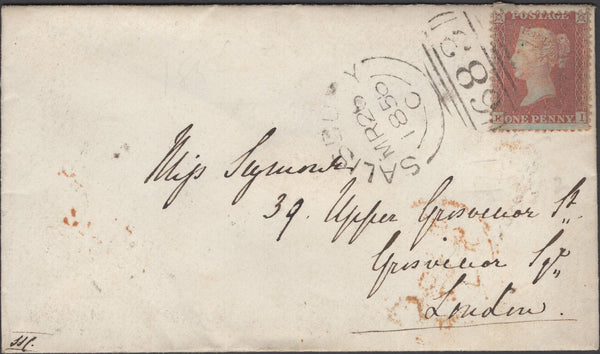 POSTAGE
ONE PENNY
I
683
SALISBURY
MR 29
1856
C
Miss Seymour
39. Upper Grosvenor St.
Grosvenor Sqr.
London.